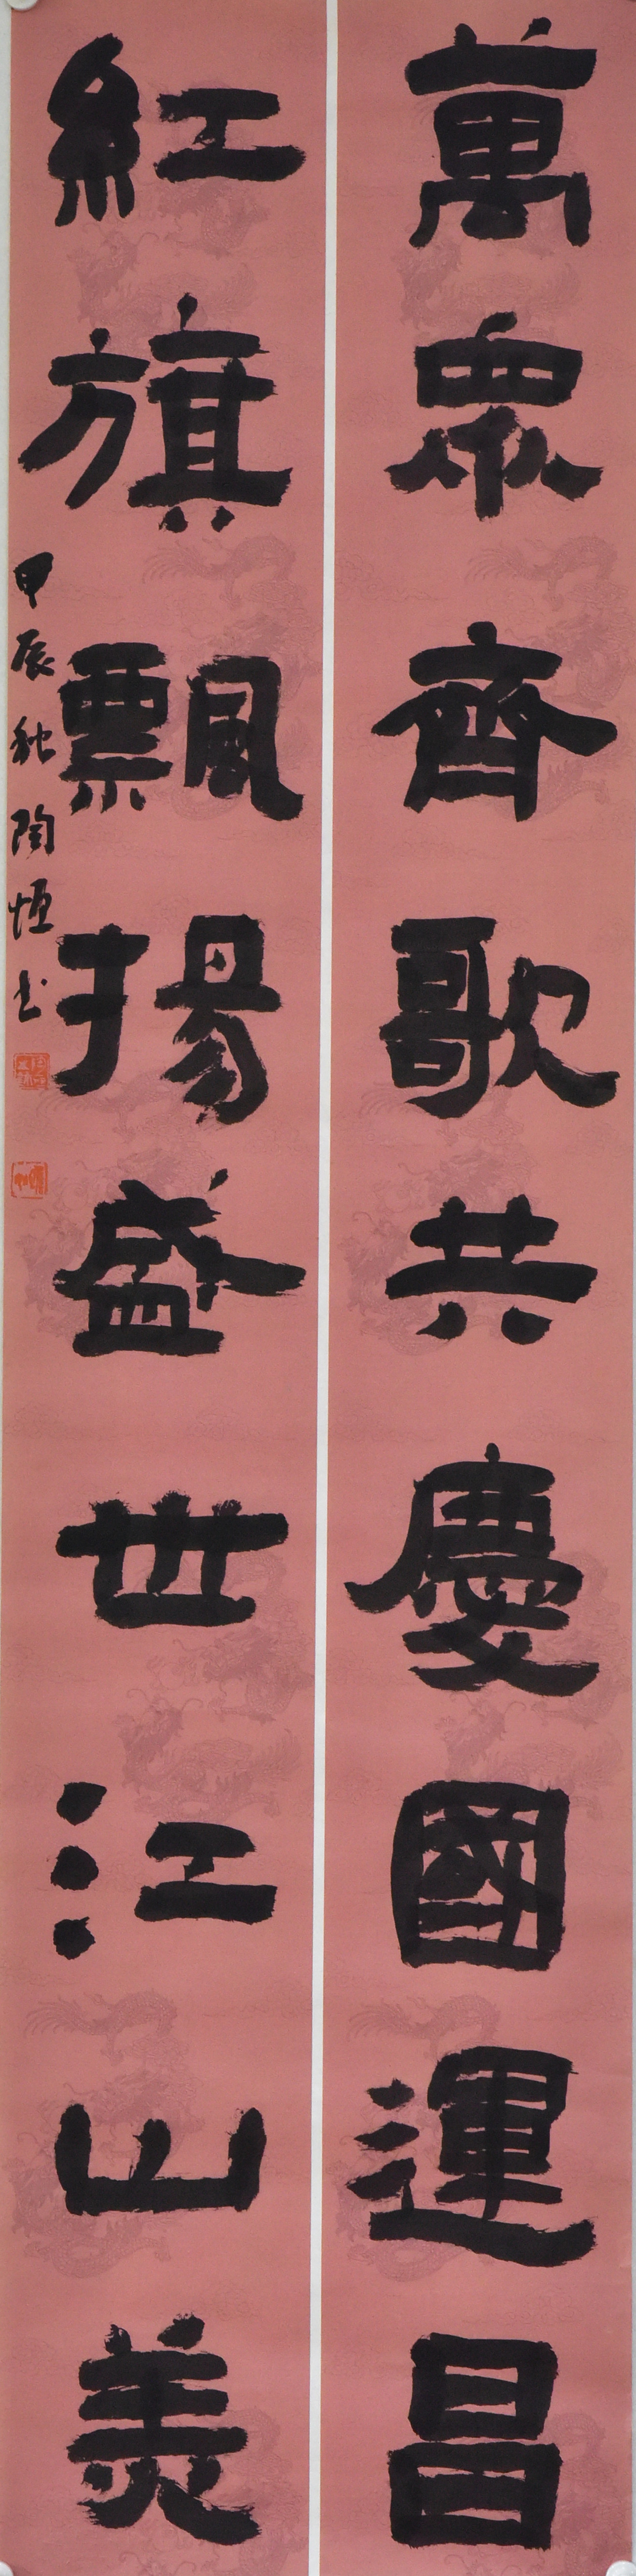 萬眾齊歌共慶國運昌
紅旗飄揚盛世江山美
甲辰秋陶恒书